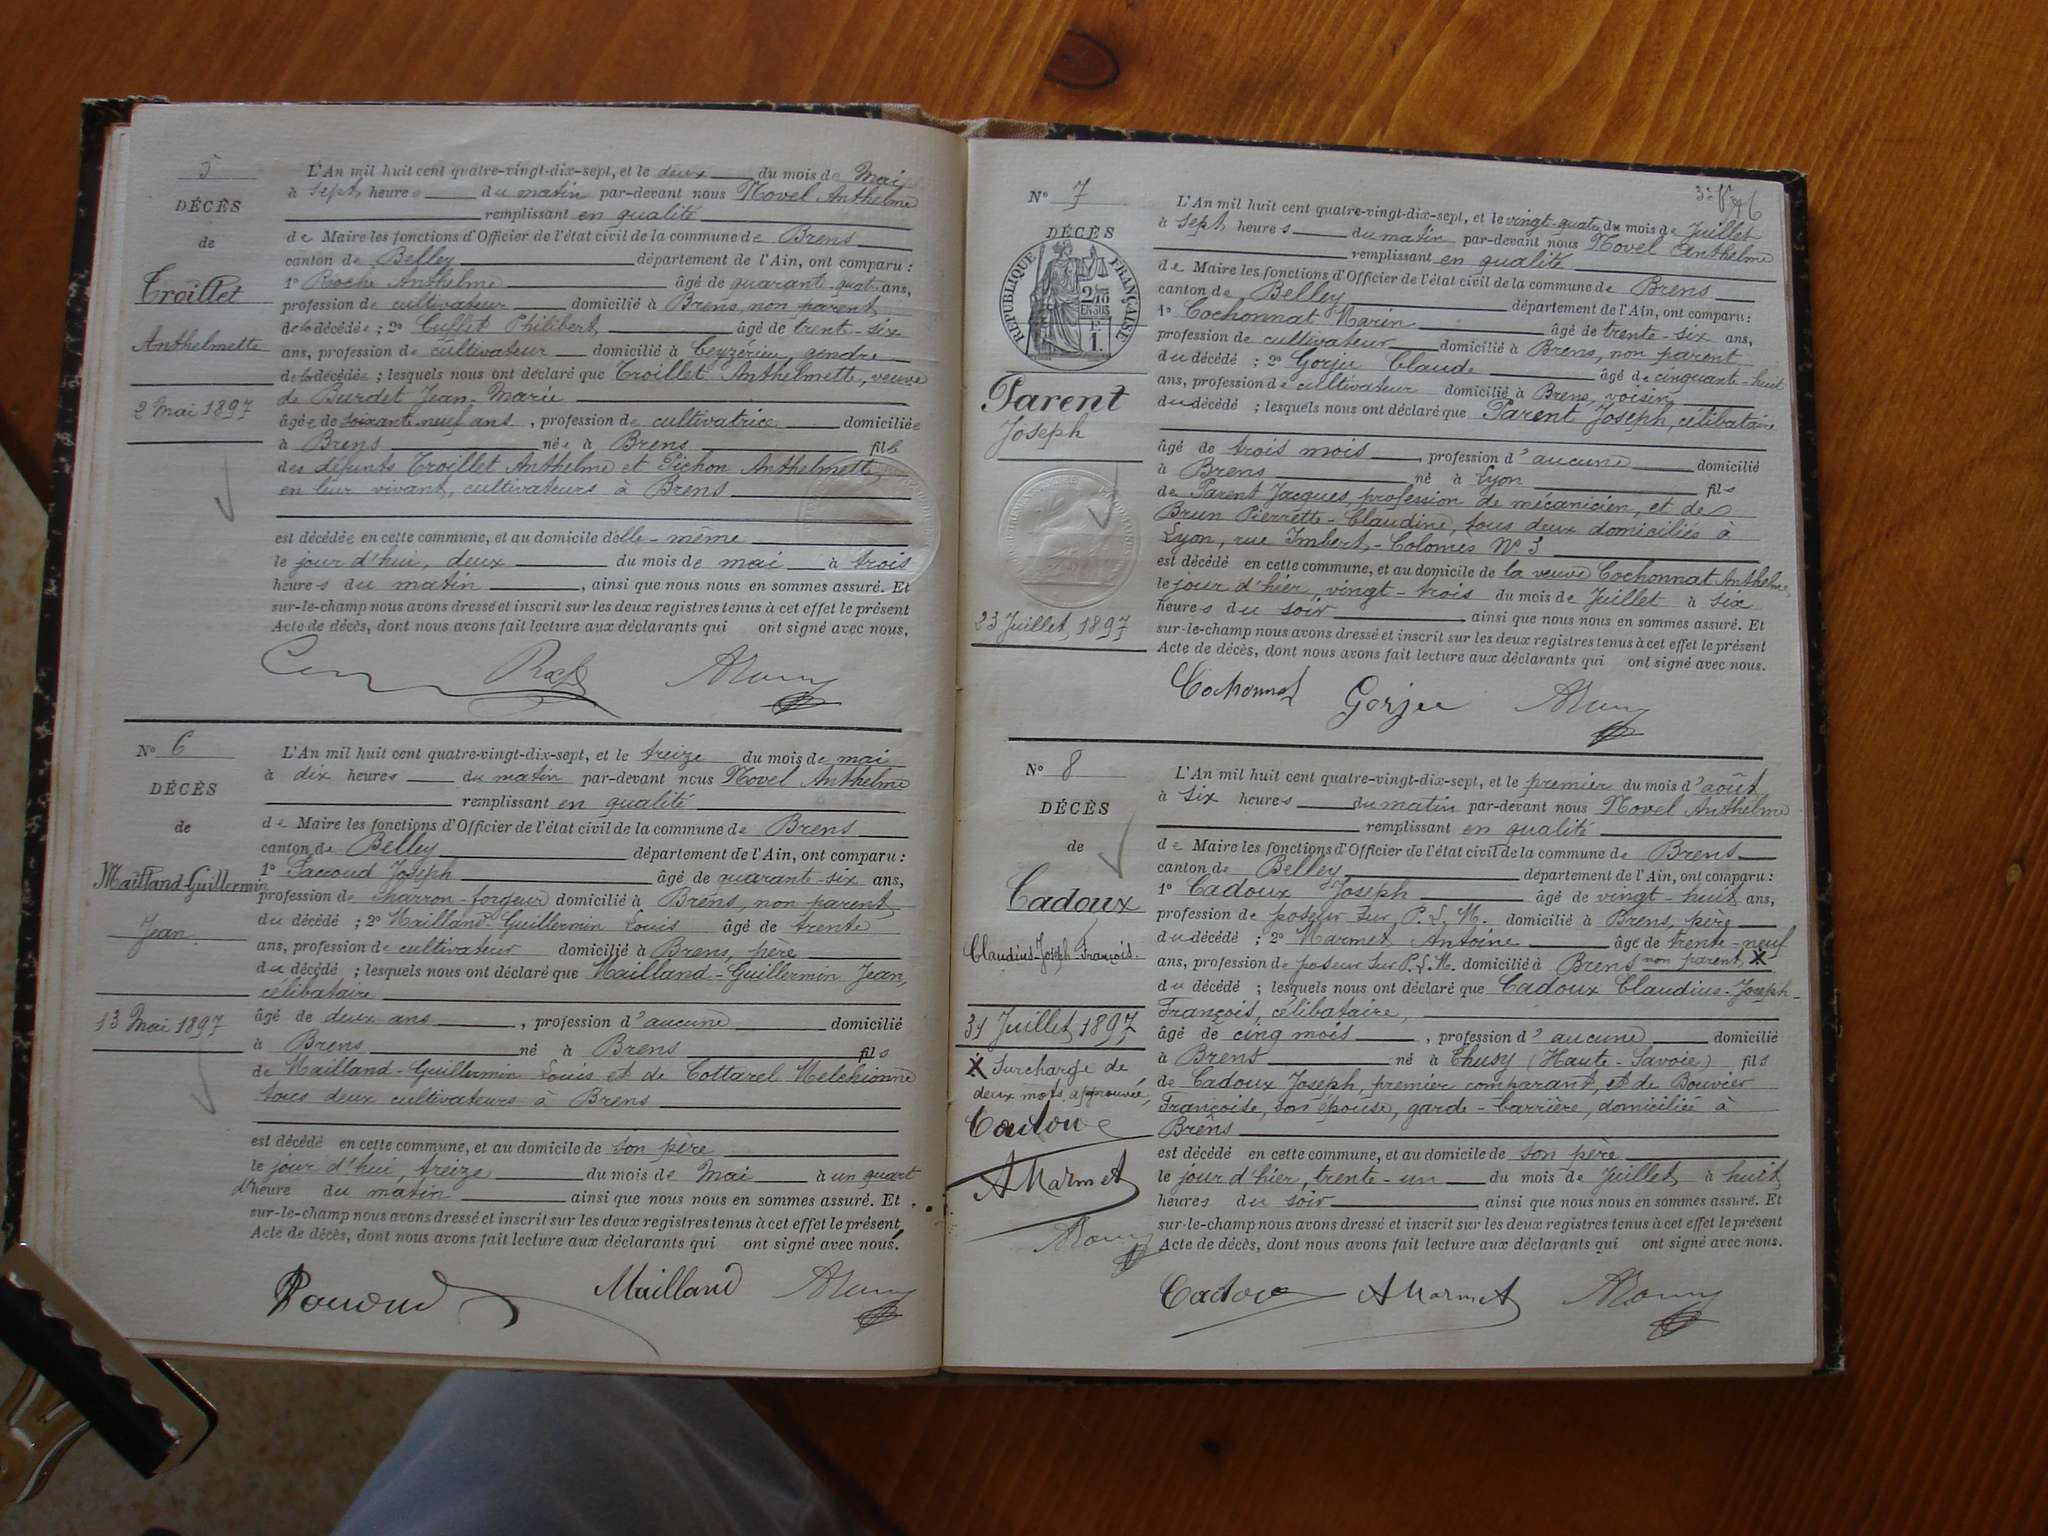 5
DÉCÈS
de
Troillet
Anthelmette
2 Mai 1897
L'An mil huit cent quatre-vingt-dix-sept, et le deux du mois de Mai
à sept heures du matin par-devant nous Novel Anthelme
remplissant en qualité
de Maire les fonctions d'Officier de l'état civil de la commune de Brens
canton de Belley département de l'Ain, ont comparu :
1° Roche Anthelme âgé de quarante-quatre ans,
profession de cultivateur domicilié à Brens, non parent
de la décédée ; 2° Cuffet Philibert, âgé de trente-six
ans, profession de cultivateur domicilié à Ceyzérieu, gendre
de la décédée ; lesquels nous ont déclaré que Troillet Anthelmette, veuve
de Burdet Jean-Marie
âgée de soixante neuf ans, profession de cultivatrice domiciliée
à Brens née à Brens fille
des défunts Troillet Anthelme et Pichon Anthelmette,
en leur vivant, cultivateurs à Brens
est décédée en cette commune, et au domicile d'elle-même
le jour d'hui, deux du mois de mai à trois
heures du matin, ainsi que nous nous en sommes assuré. Et
sur-le-champ nous avons dressé et inscrit sur les deux registres tenus à cet effet le présent
Acte de décès, dont nous avons fait lecture aux déclarants qui ont signé avec nous.
N° 6
DÉCÈS
de
Mailland-Guillermin
Jean
13 Mai 1897
L'An mil huit cent quatre-vingt-dix-sept, et le treize du mois de mai
à dix heures du matin par-devant nous Novel Anthelme
remplissant en qualité
de Maire les fonctions d'Officier de l'état civil de la commune de Brens
canton de Belley département de l'Ain, ont comparu :
1° Paccoud Joseph âgé de quarante-six ans,
profession de charron-forgeur domicilié à Brens, non parent
du décédé ; 2° Mailland-Guillermin Louis âgé de trente
ans, profession de cultivateur domicilié à Brens, père
du décédé ; lesquels nous ont déclaré que Mailland-Guillermin Jean,
célibataire
âgé de deux ans, profession d'aucune domicilié
à Brens né à Brens fils
de Mailland-Guillermin Louis et de Cottarel Melchionne
tous deux cultivateurs à Brens
est décédé en cette commune, et au domicile de son père
le jour d'hui, treize du mois de Mai à un quart
d'heure du matin ainsi que nous nous en sommes assuré. Et
sur-le-champ nous avons dressé et inscrit sur les deux registres tenus à cet effet le présent
Acte de décès, dont nous avons fait lecture aux déclarants qui ont signé avec nous.
Mailland
N° 7
DÉCÈS
RÉPUBLIQUE FRANÇAISE
2/10 EN SUS
1
Parent
Joseph
23 Juillet 1897
L'An mil huit cent quatre-vingt-dix-sept, et le vingt-quatre du mois de Juillet
à sept heures du matin par-devant nous Novel Anthelme
remplissant en qualité
de Maire les fonctions d'Officier de l'état civil de la commune de Brens
canton de Belley département de l'Ain, ont comparu :
1° Cochonnat Marin âgé de trente-six ans,
profession de cultivateur domicilié à Brens, non parent
du décédé ; 2° Gorju Claude âgé de cinquante-huit
ans, profession de cultivateur domicilié à Brens, voisin
du décédé ; lesquels nous ont déclaré que Parent Joseph, célibataire
âgé de trois mois, profession d'aucune domicilié
à Brens né à Lyon fils
de Parent Jacques, profession de mécanicien, et de
Brun Pierrette-Claudine, tous deux domiciliés à
Lyon, rue Imbert-Colomes N° 3
est décédé en cette commune, et au domicile de la veuve Cochonnat Anthelme,
le jour d'hier, vingt-trois du mois de Juillet à six
heures du soir ainsi que nous nous en sommes assuré. Et
sur-le-champ nous avons dressé et inscrit sur les deux registres tenus à cet effet le présent
Acte de décès, dont nous avons fait lecture aux déclarants qui ont signé avec nous.
Cochonnat Gorju
N° 8
DÉCÈS
de
Cadoux
Claudius-Joseph-François
31 Juillet 1897
X Surcharge de
deux mots approuvée,
Cadoux
AMarmet
L'An mil huit cent quatre-vingt-dix-sept, et le premier du mois d'août
à six heures du matin par-devant nous Novel Anthelme
remplissant en qualité
de Maire les fonctions d'Officier de l'état civil de la commune de Brens
canton de Belley département de l'Ain, ont comparu :
1° Cadoux Joseph âgé de vingt-huit ans,
profession de poseur sur P.L.M. domicilié à Brens, père
du décédé ; 2° Marmet Antoine âgé de trente-neuf
ans, profession de poseur sur P.L.M. domicilié à Brens non parent, X
du décédé ; lesquels nous ont déclaré que Cadoux Claudius-Joseph-
François, célibataire,
âgé de cinq mois, profession d'aucune domicilié
à Brens né à Thusy (Haute-Savoie) fils
de Cadoux Joseph, premier comparant, et de Bouvier
Françoise, son épouse, garde-barrière, domiciliée à
Brens
est décédé en cette commune, et au domicile de son père
le jour d'hier, trente-un du mois de Juillet à huit
heures du soir, ainsi que nous nous en sommes assuré. Et
sur-le-champ nous avons dressé et inscrit sur les deux registres tenus à cet effet le présent
Acte de décès, dont nous avons fait lecture aux déclarants qui ont signé avec nous.
Cadoux AMarmet